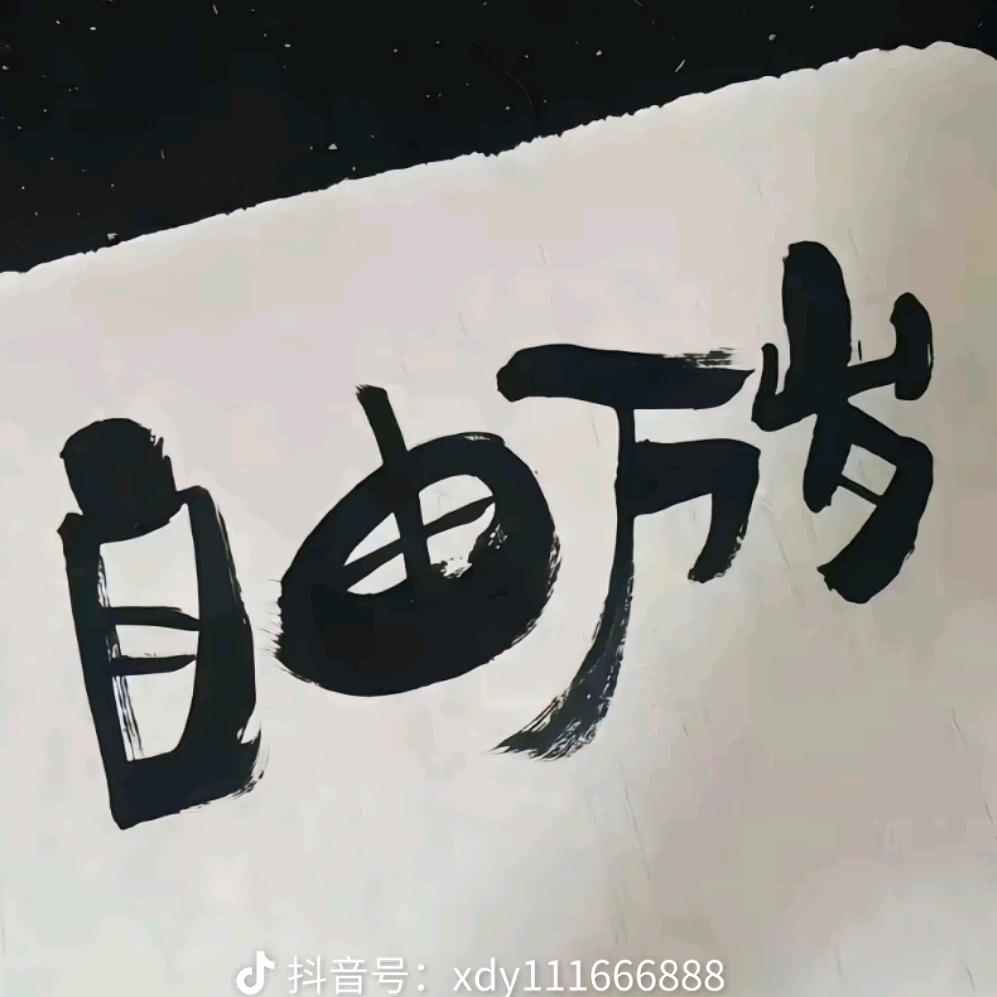 自由万岁
抖音号：xdy111666888